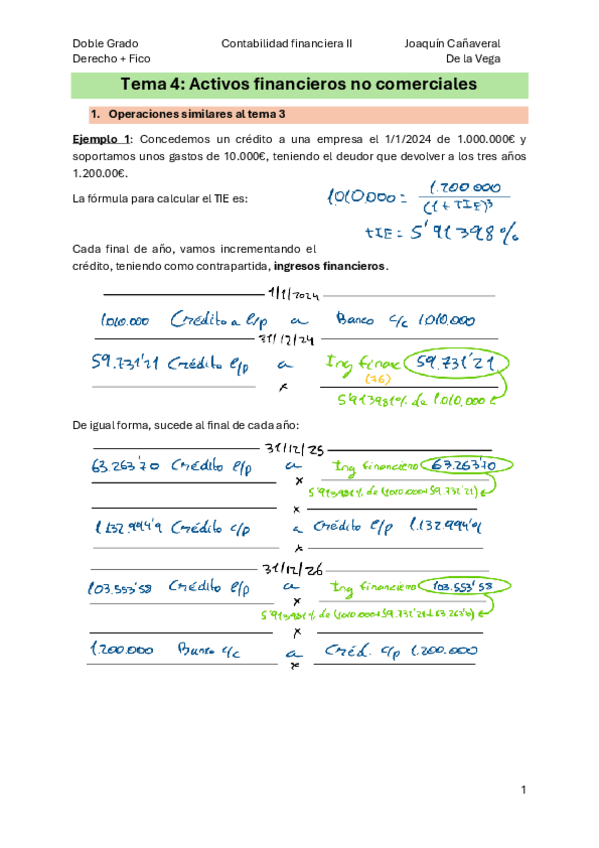 Doble Grado Contabilidad financiera II Joaquín Cañaveral
Derecho + Fico De la Vega
Tema 4: Activos financieros no comerciales
1. Operaciones similares al tema 3
Ejemplo 1: Concedemos un crédito a una empresa el 1/1/2024 de 1.000.000€ y
soportamos unos gastos de 10.000€, teniendo el deudor que devolver a los tres años
1.200.00€.
La fórmula para calcular el TIE es:
1010.000 = 1.200.000 / (1+TIE)³
TIE = 5'91398%
Cada final de año, vamos incrementando el
crédito, teniendo como contrapartida, ingresos financieros.
1/1/2024
1010.000 Crédito a l/p a Banco c/c 1.010.000
31/12/24
59.731'21 Crédito l/p a Ing financ 59.731'21
x (76)
5'91398% de 1.010.000
De igual forma, sucede al final de cada año:
31/12/25
63.263'70 Crédito l/p a Ing financiero 63.263'70
x
x
1.132.994'9 Crédito c/p a Crédito l/p 1.132.994'9
x
31/12/26
103.553'58 Crédito l/p a Ing financiero 103.553'58
x
x
1.200.000 Banco c/c a Créd. c/p 1.200.000
x
1